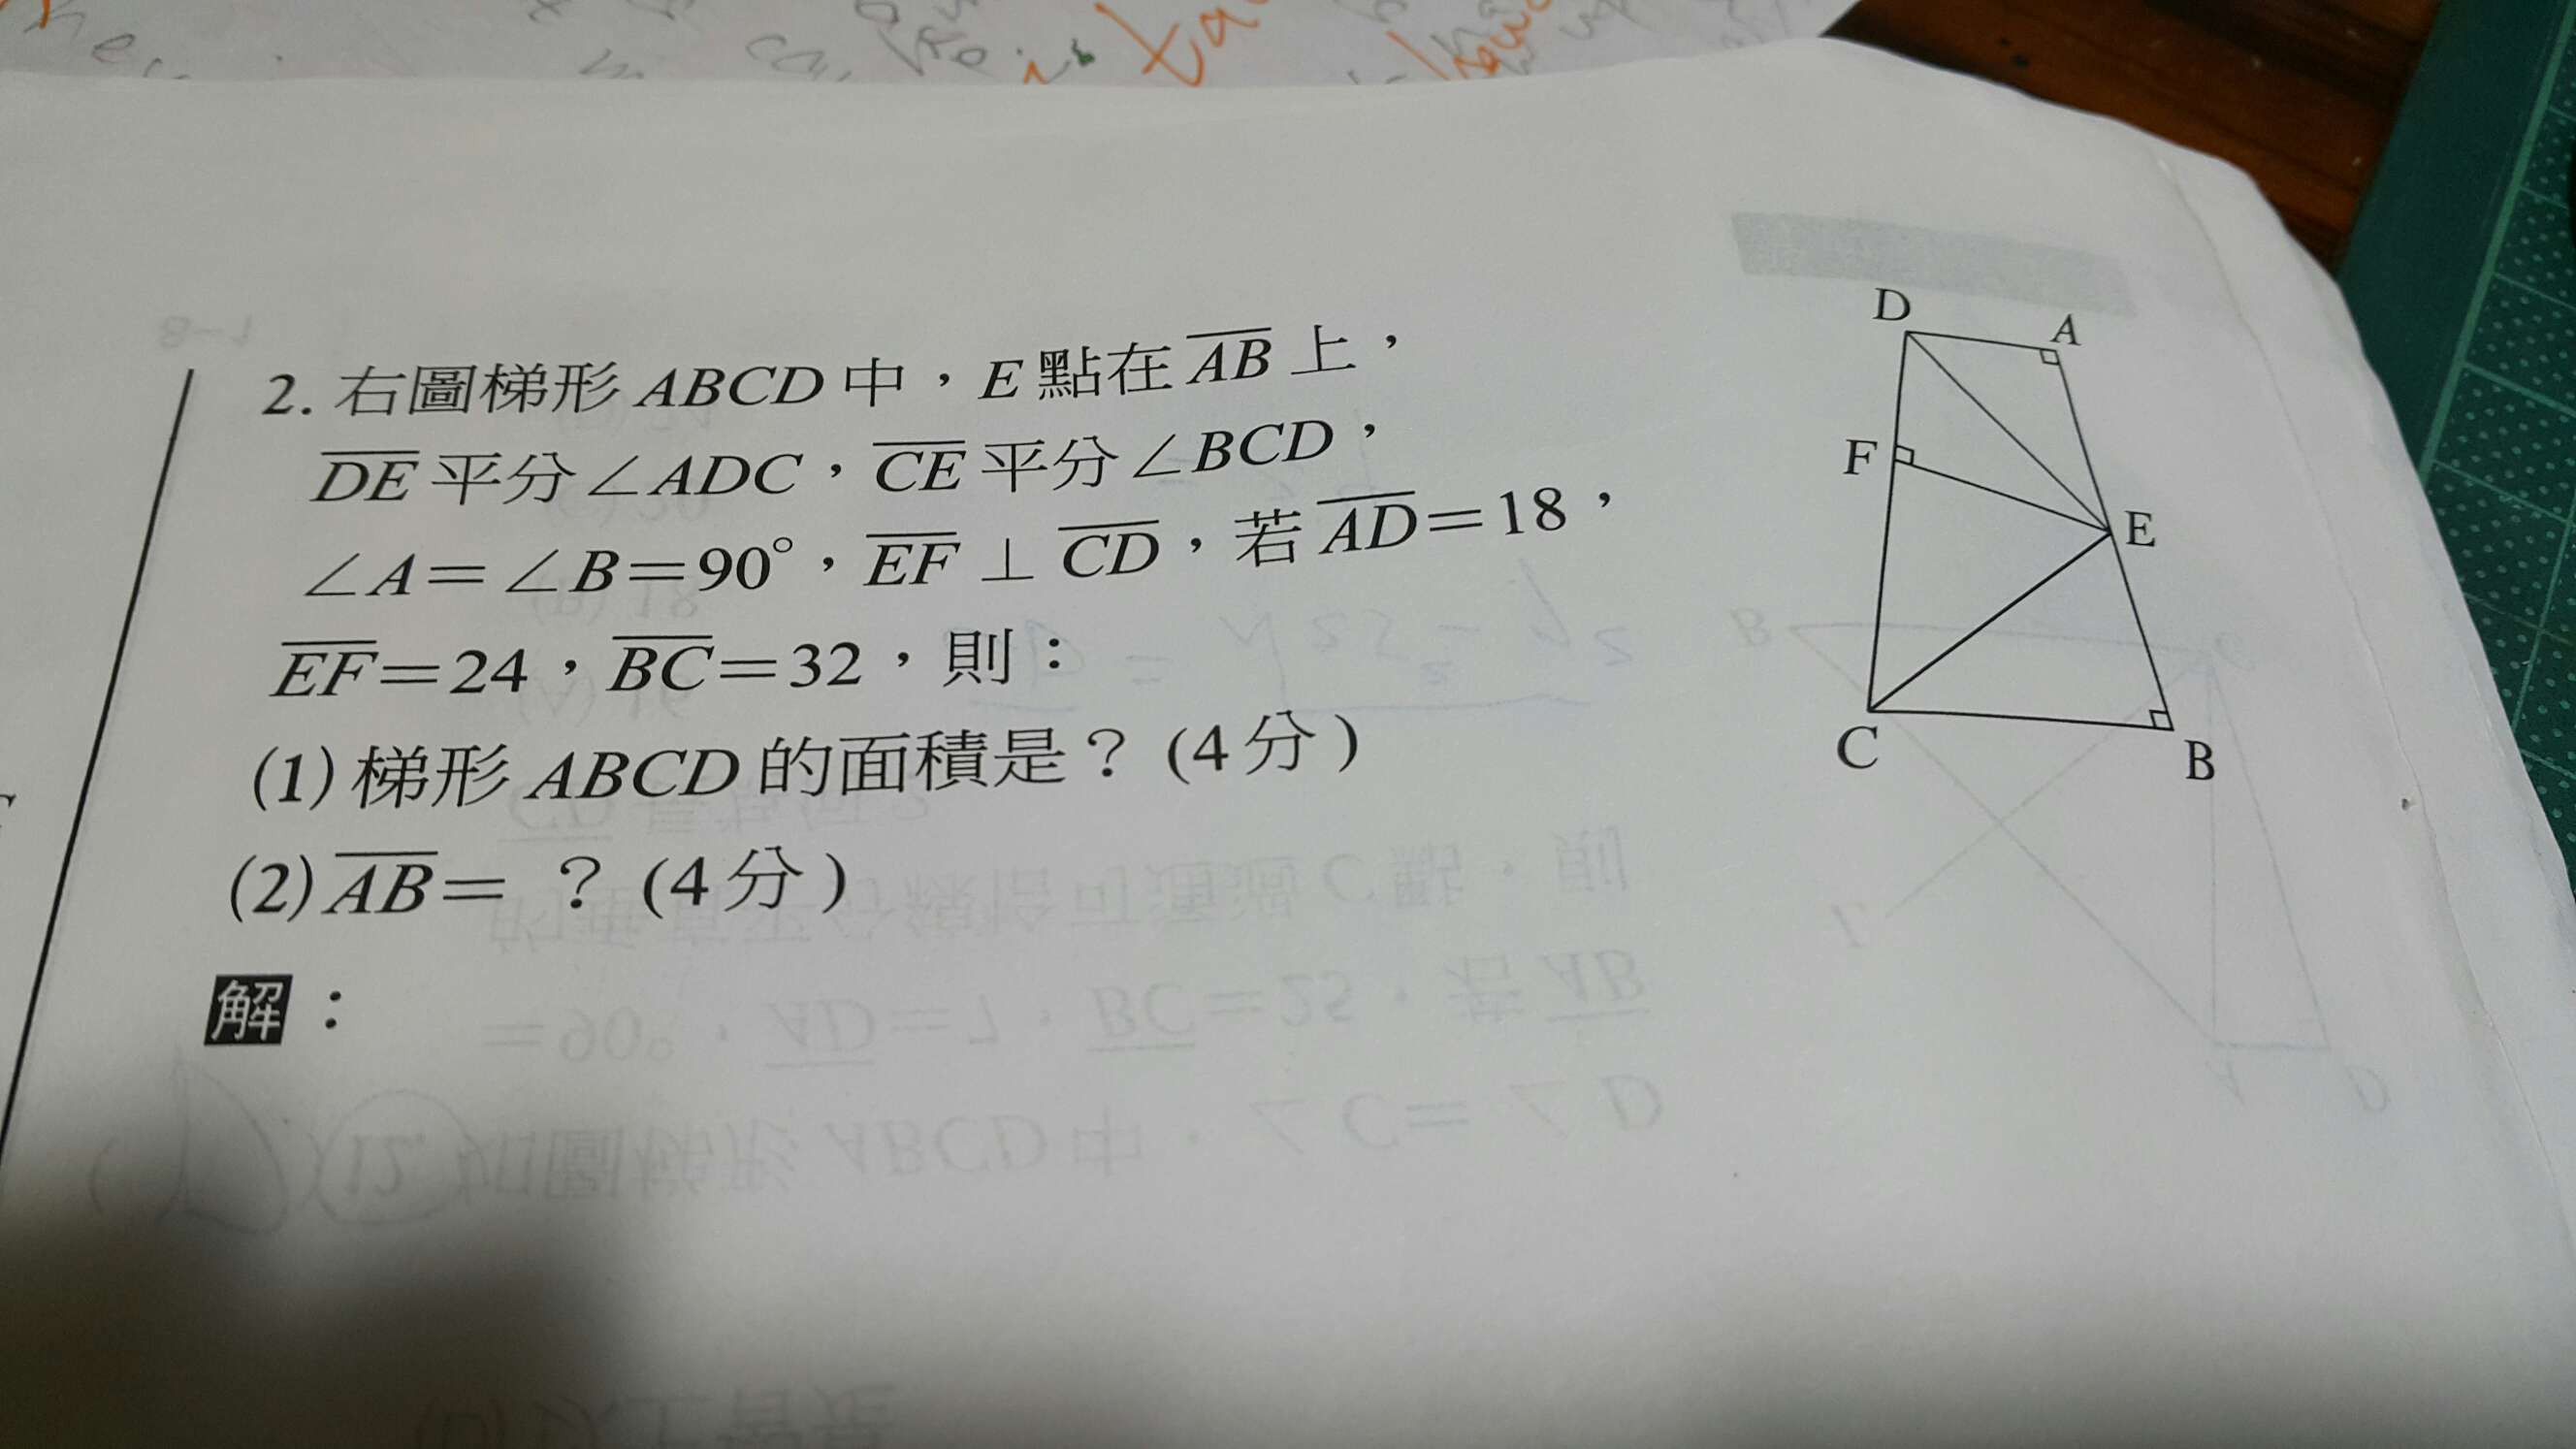 2. 右圖梯形 ABCD 中，E 點在 AB 上，
DE 平分∠ADC，CE 平分∠BCD，
∠A＝∠B＝90°，EF⊥CD，若 AD＝18，
EF＝24，BC＝32，則：
(1) 梯形 ABCD 的面積是？(4分)
(2) AB＝ ？(4分)
解：
D
A
F
E
C
B